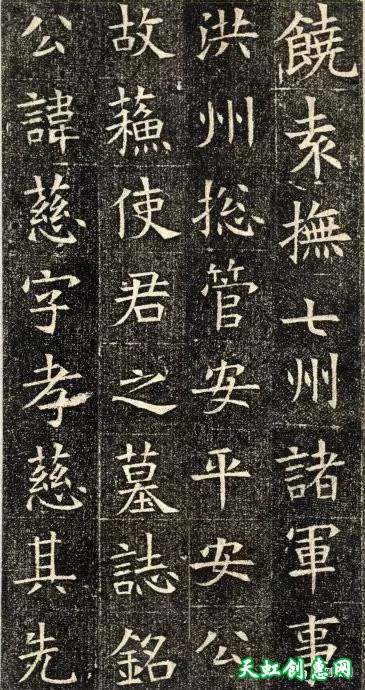 饒袁撫七州諸軍事
洪州捴管安平安公
故蘓使君之墓誌銘
公諱慈字孝慈其先
天虹创意网